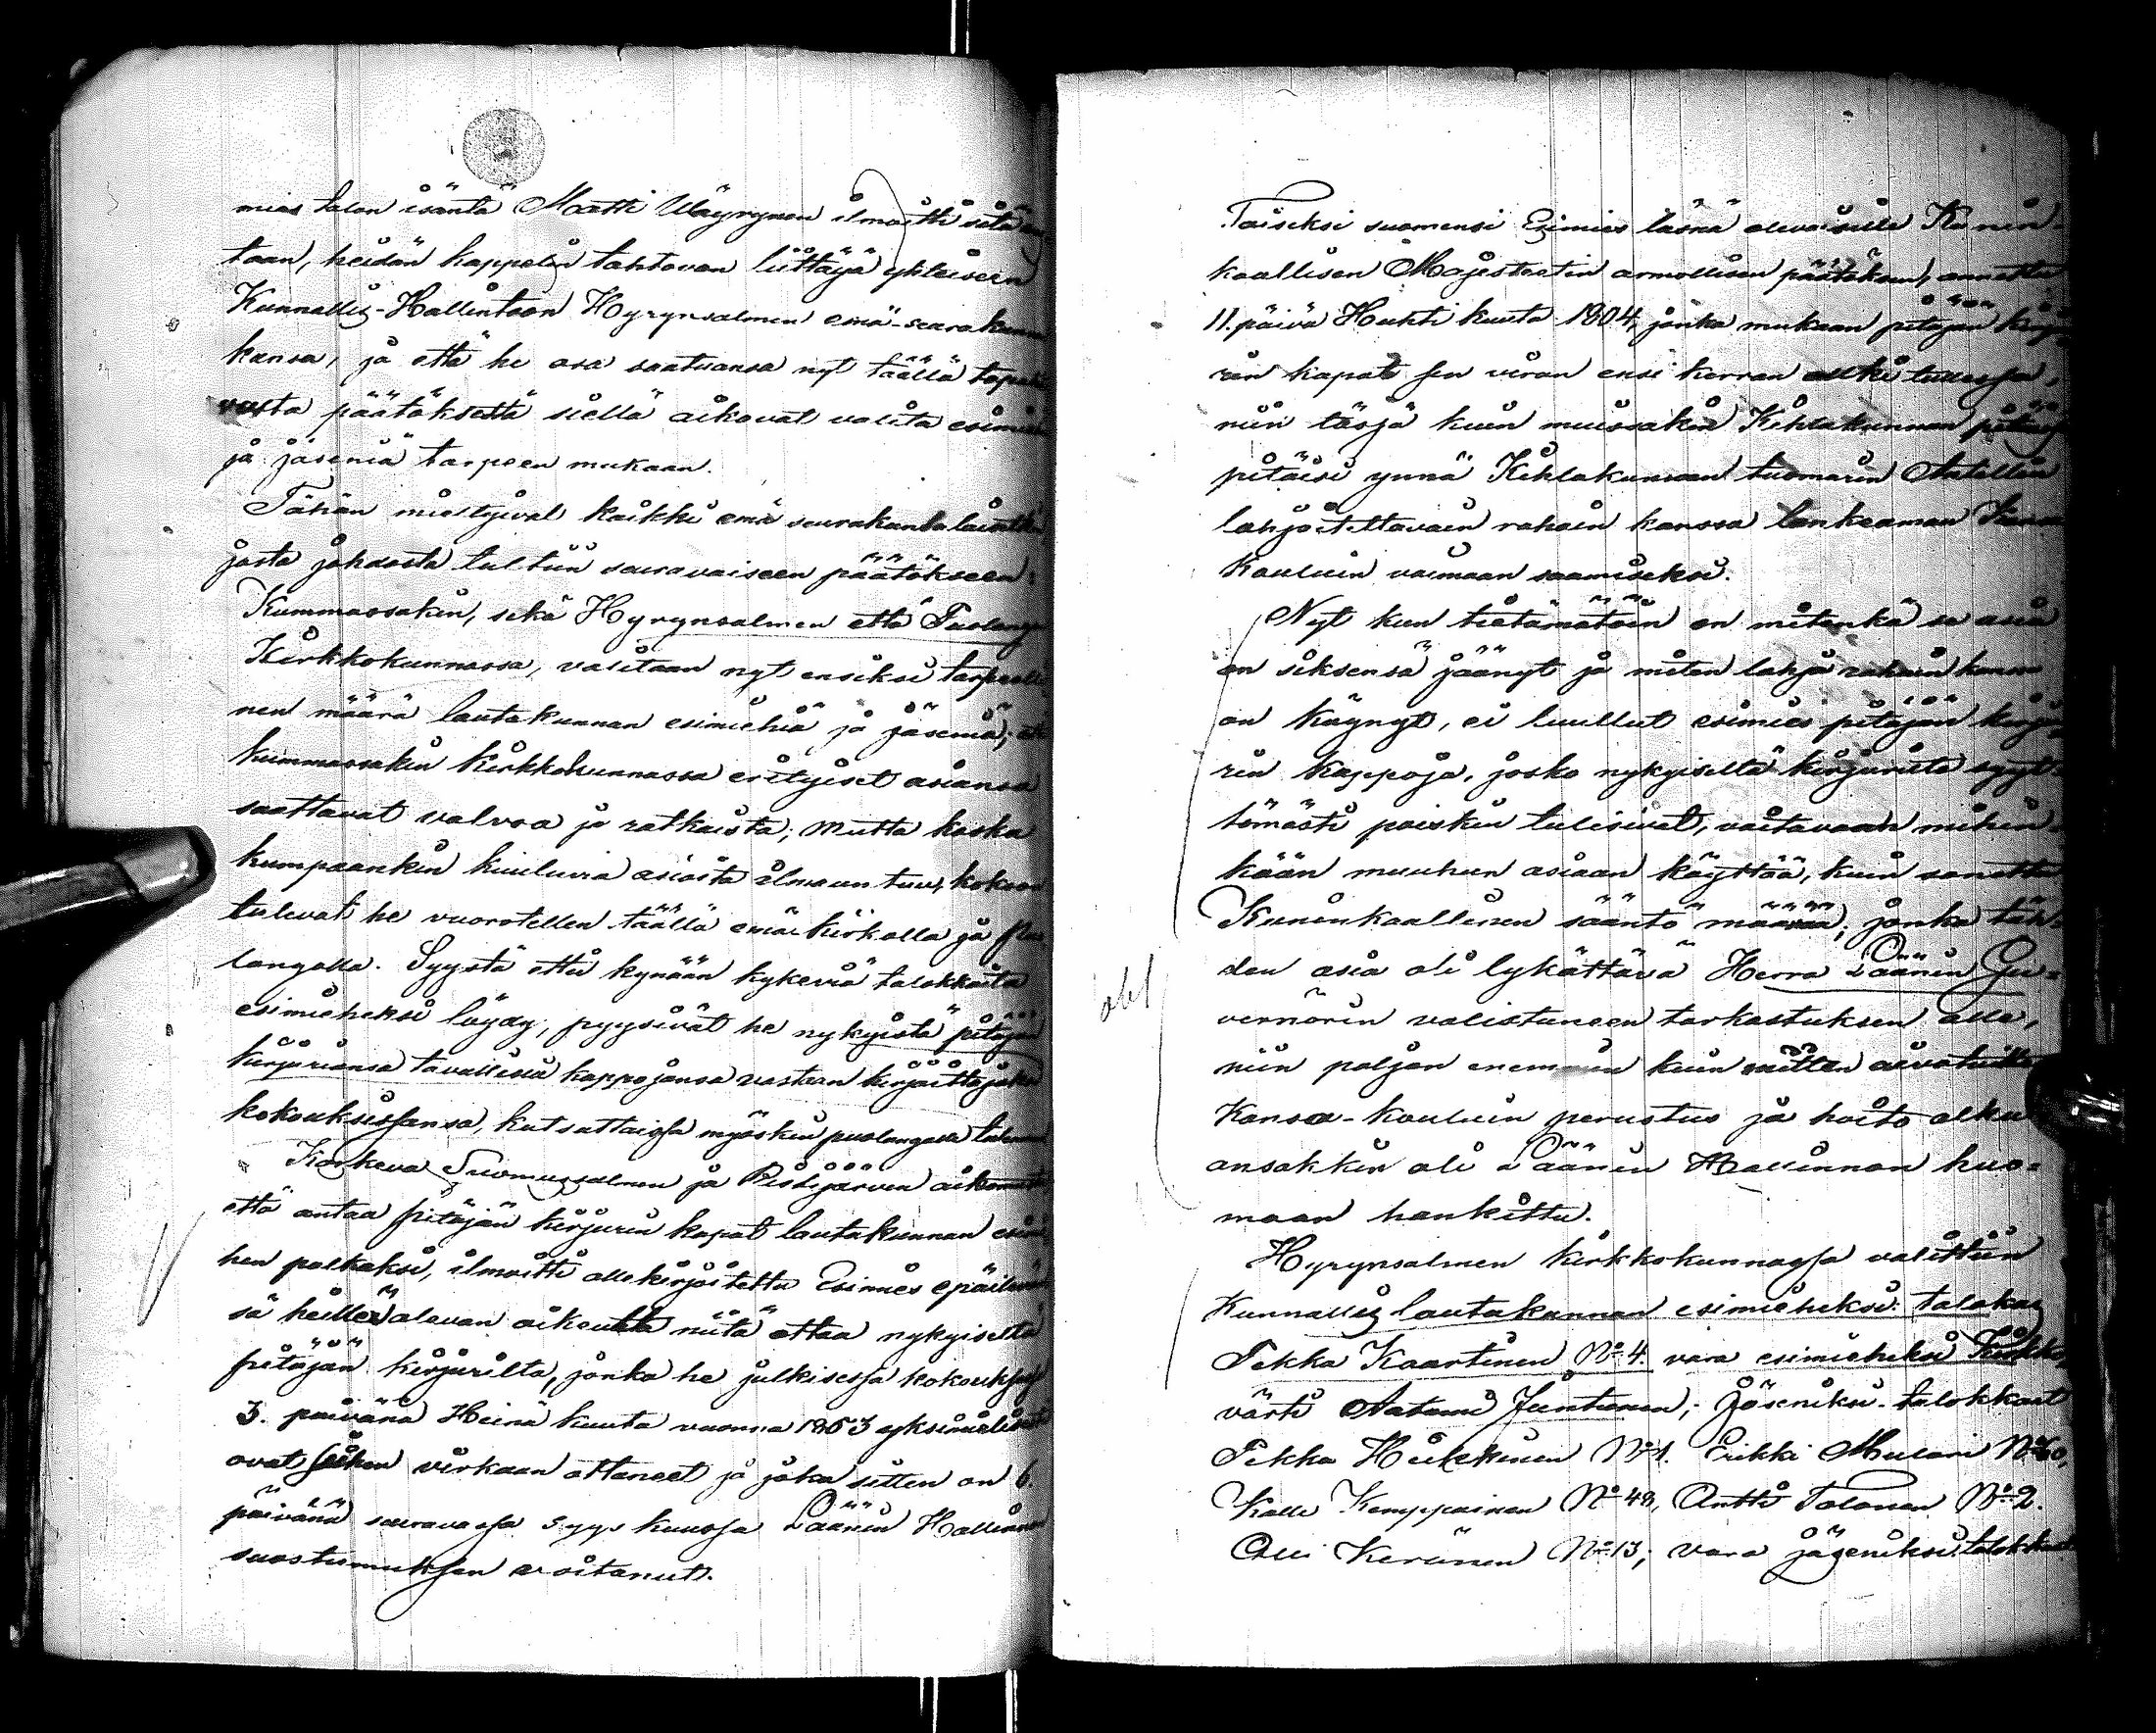 mies talon isäntä Matti Wäyrynen ilmoitti
taan, heidän kappelin tahtovan liittäjä yhteiseen
Kunnallis-Hallintoon Hyrynsalmen emä-seurakunnan
kansa, ja että he osa saatuansa nyt täällä tapah
vasta päätöksestä siellä aikovat valita esimies
ja jäseniä tarpeen mukaan.
Tähän miestyivät kaikki emä seurakuntalaiset
josta johdosta tultiin seuravaiseen päätökseen:
Kummassakin, sekä Hyrynsalmen että Puolangan
Kirkkokunnassa, valitaan nyt ensiksi tarpeelli
nen määrä lautakunnan esimiehiä ja jäseniä;
kummassakin kirkkokunnassa erityiset asiansa
saattavat valvoa ja ratkaista; mutta koska
kumpaankin kuuluvia asioita ilmauntuu, kokoon
tulevat he vuorotellen täällä emäkirkolla ja Puo
langalla. Syystä ettei kynään kykeviä talokkaita
esimieheksi löydy, pyysivät he nykyistä pitäjän
kirjuriansa tavallisia kappojansa vastaan kirjoittajaksi
kokouksissansa, kutsuttaissa myöskin puolangalle
Koskeva Suomussalmen ja Ristijärven aikomusta
että antaa pitäjän kirjurin kapat lautakunnan esimie
hen palkaksi, ilmoitti allekirjoitettu Esimies epäilevän
sä heillä olevan oikeutta niitä ottaa nykyiseltä
pitäjän kirjurilta, jonka he julkisessa kokouksessa
3. päivänä Heinä kuuta vuonna 1863 yksimielisesti
ovat siihen virkaan ottaneet ja joka sitten on 6.
päivänä seuravassa Syys kuussa Läänin Hallinnon
suostumuksen voitanut.
Toiseksi suomensi Esimies läsnä olevaisille Kunin-
kaallisen Majesteetin armollisen päätöksen, annettu
11. päivä Huhti kuuta 1804, jonka mukaan pitäjän kirju
rin kapat sen viran ensi kerran aukki tullessa,
niin tässä kuin muissakin Kihlakunnan pitäjis
pitäisi ynnä Kihlakunnan tuomarin Antellin
lahjoitettavain rahain kanssa lankeaman Kansa
Kouluin voimaan saamiseksi.
Nyt kun tietämätöin on mitenkä se asia
on siksensä jäänyt ja miten lahja rahain kanssa
on käynyt, ei luullut esimies pitäjän kirju
rin kappoja, josko nykyiseltä kirjurilta syyt-
tömästi poiskin tulisivat, voitavaan mihin-
kään muuhun asiaan käyttää, kuin sanottu
Kuninkaallinen sääntö määrää; jonka täh-
den asia oli lykättävä Herra Läänin Gu-
vernörin valistuneen tarkastuksen alle,
niin paljon enemmin kuin sitten
Kansa-kouluin perustus ja hoito alku
ansakkin oli Läänin Hallinnon huo-
maan hankittu.
obs
Hyrynsalmen kirkkokunnassa valittiin
Kunnallis lautakunnan esimieheksi: talokas
Pekka Kaartinen No 4. vara esimieheksi Kirkko
värti Aatami Juntunen; Jäseniksi: talokkaat
Pekka Heikkinen No 1. Erikki Mulari No
Kalle Kemppainen No 48, Antti Tolonen No 2.
Olli Keränen No 13; vara jäseniksi: talokkaat